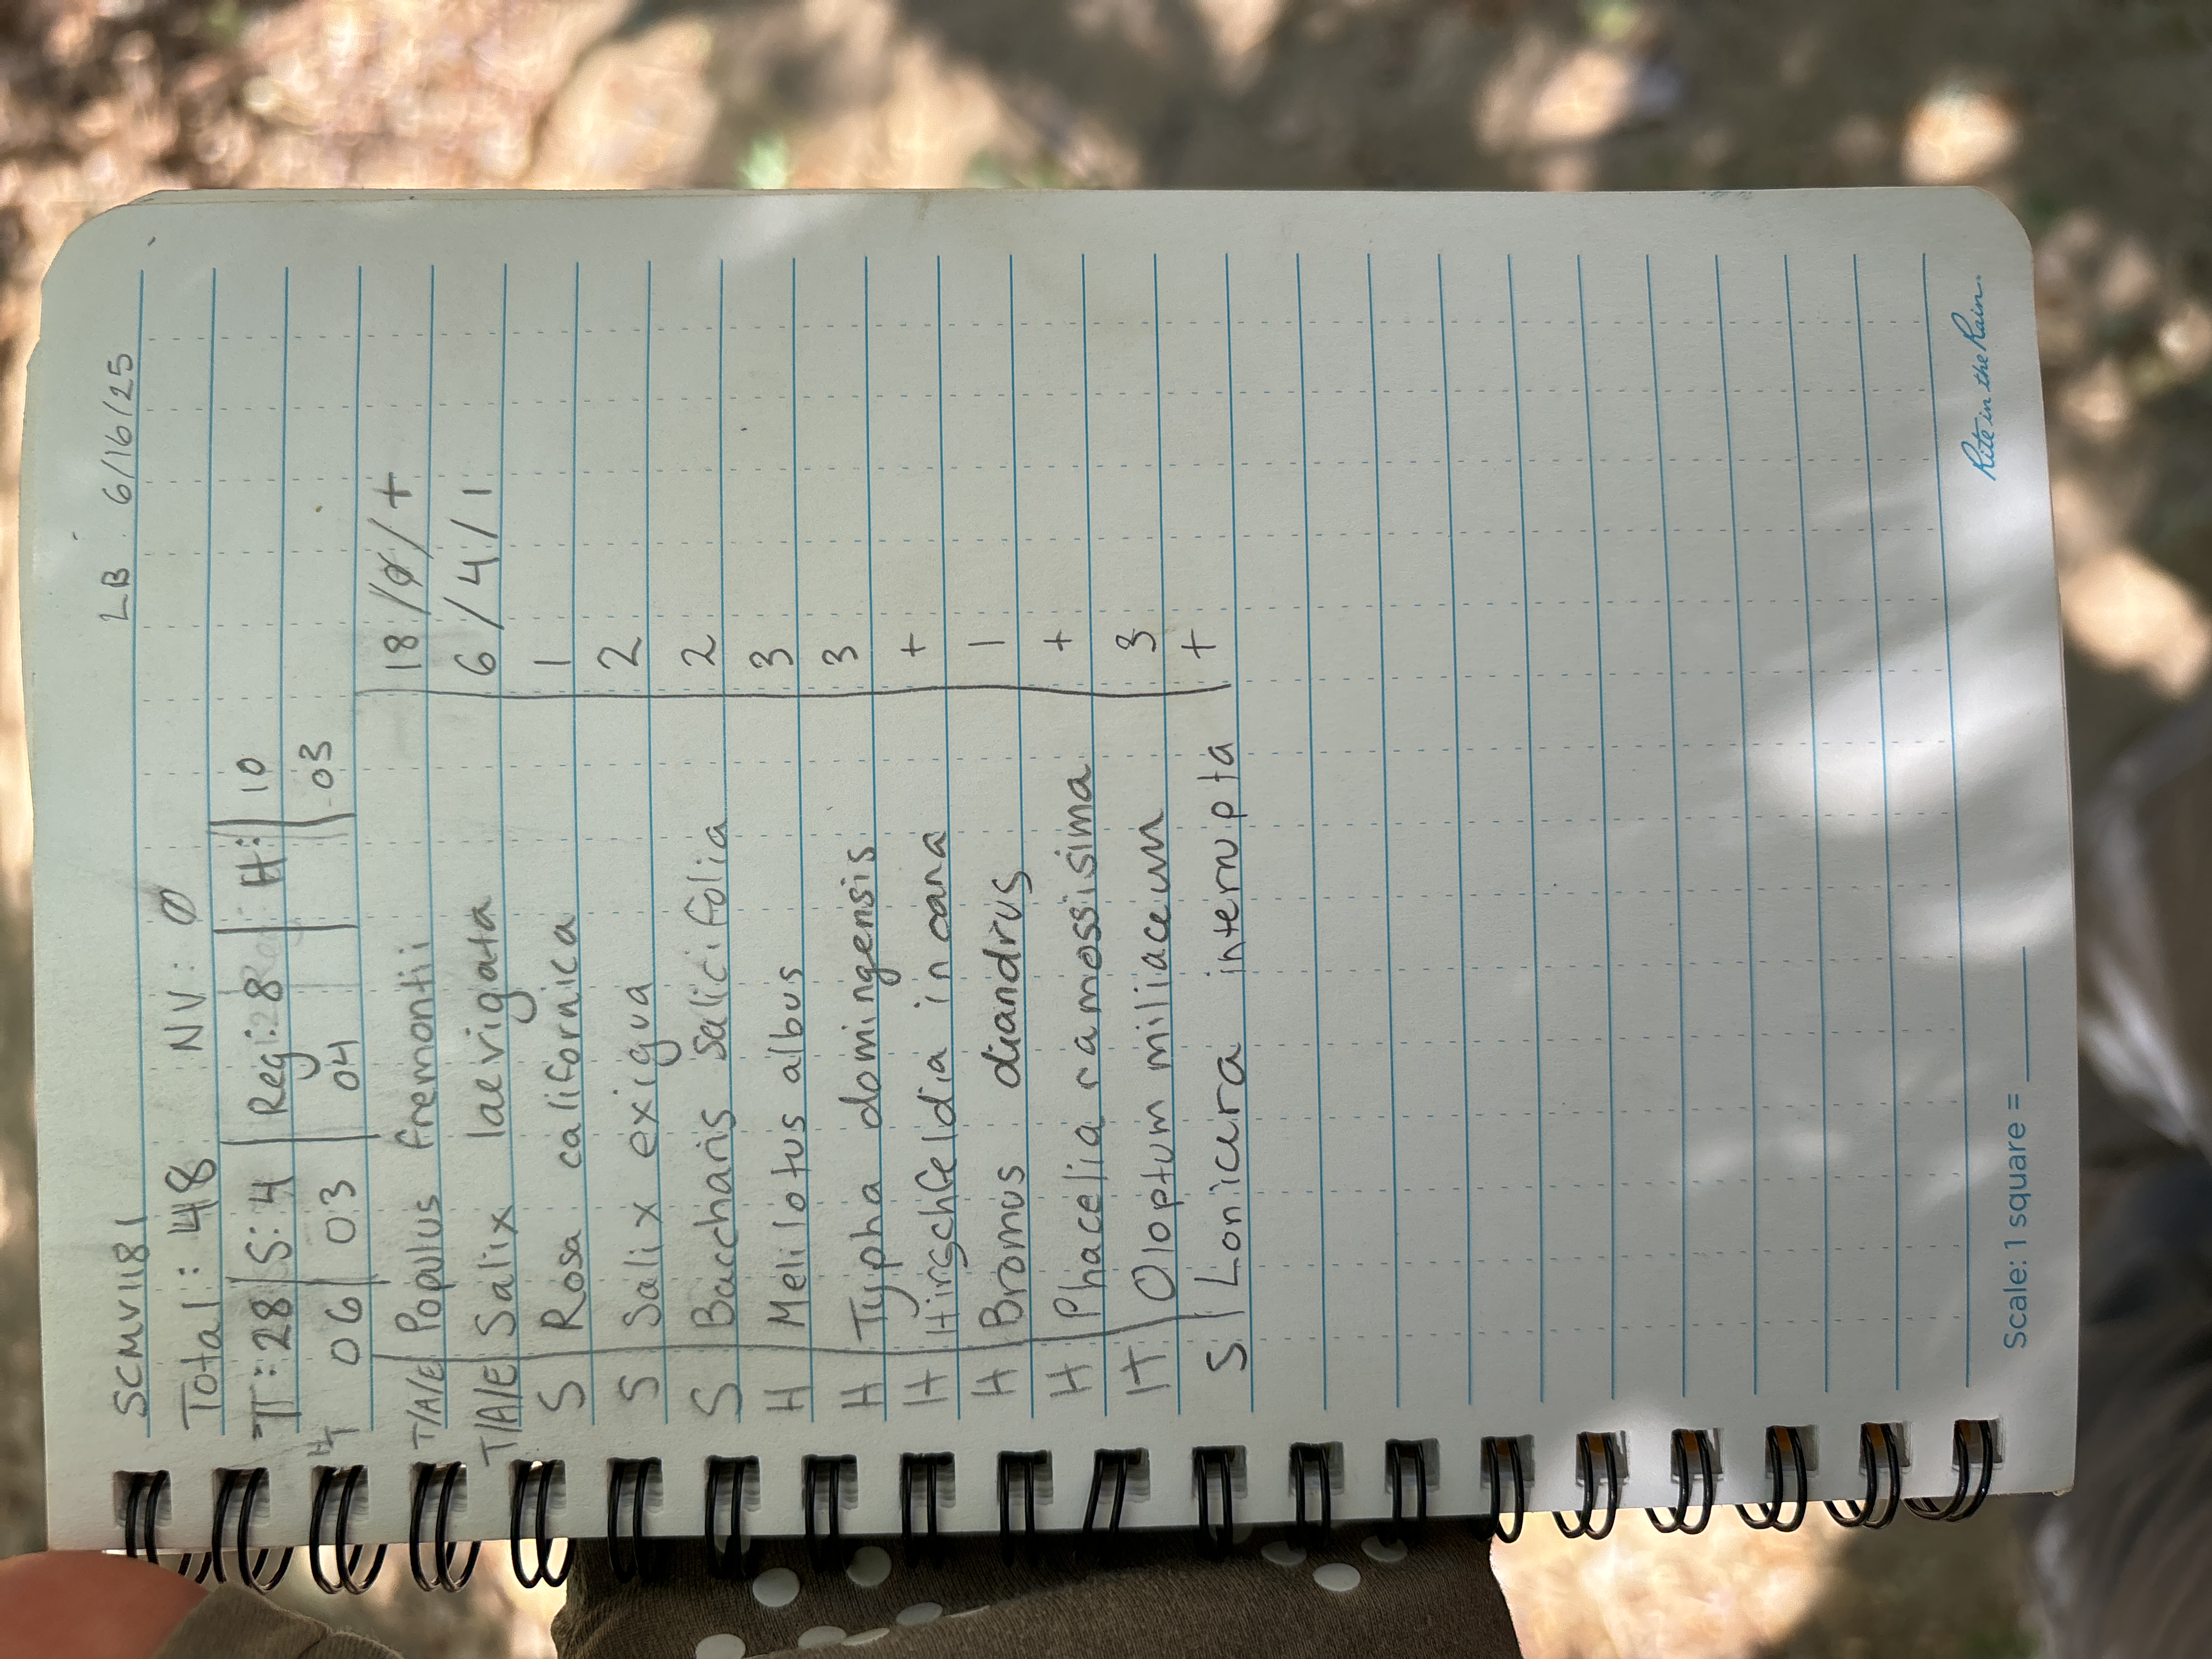 LB 6/16/25
SCMV1181
Total: 48 NV: Ø
T: 28 | S: 4 | Reg: 8 | H: | 10
H 06 | 03 | 04 | 03
T/A/E | Populus fremontii | 18/Ø/+
T/A/E | Salix laevigata | 6/4/1
S | Rosa californica | 1
S | Salix exigua | 2
S | Baccharis salicifolia | 2
H | Melilotus albus | 3
H | Typha domingensis | 3
H | Hirschfeldia incana | +
H | Bromus diandrus | 1
H | Phacelia ramossisima | +
H | Oloptum miliaceum | 3
S | Lonicera interrupta | +
Scale: 1 square = ____
Rite in the Rain.